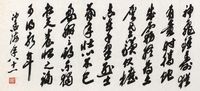 神龜雖壽猶
有竟時騰蛇
乘霧終為土
灰老驥伏櫪
志在千里烈士
暮年壯心不已
盈縮之期不獨
在天養怡之福
可得永年
沙孟海